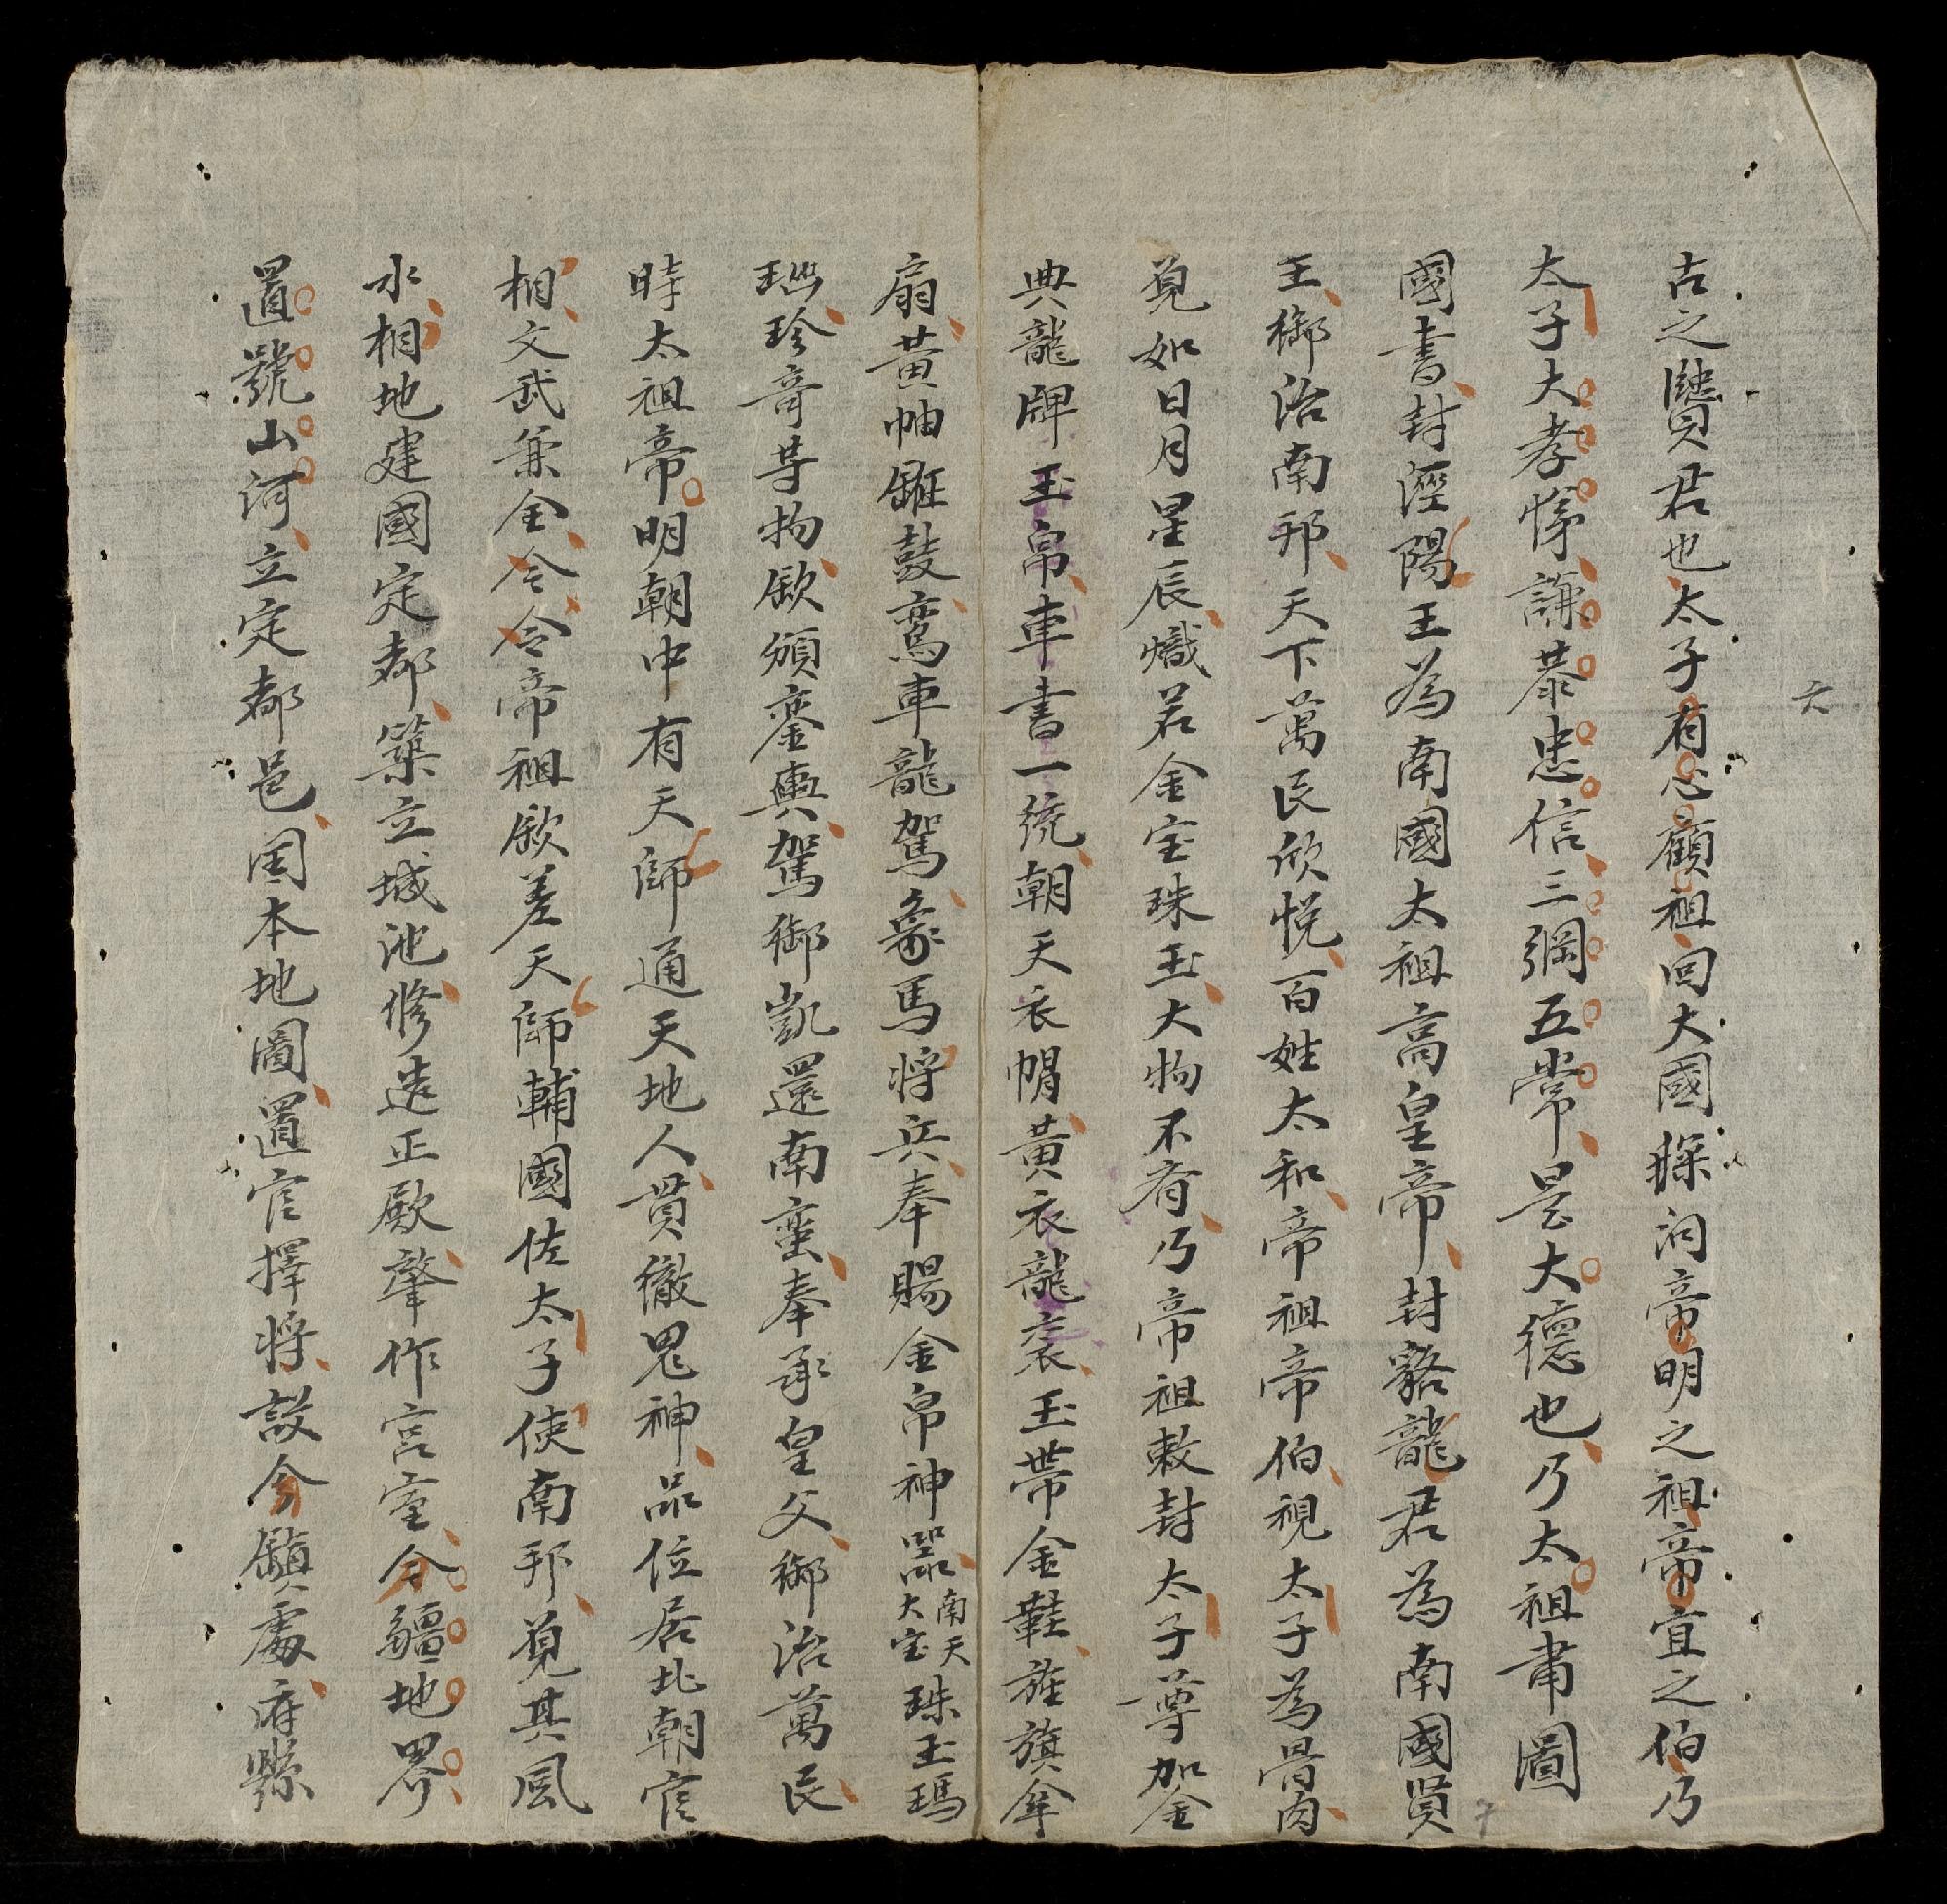 六
古之賢君也太子有心顧祖回大國探问帝明之祖帝宜之伯乃
太子大孝悌謙恭忠信三綱五常是大德也乃太祖甫圖
國書封涇陽王為南國太祖高皇帝封貉龍君為南國賢
王御治南邦天下萬民欣悅百姓太和帝祖帝伯視太子為骨肉
覓如日月星辰熾若金宝珠玉大物不有乃帝祖敕封太子尊加金
典龍牌玉帛車書一統朝天衣帽黃衣龍袞玉帶金鞋旌旗傘
扇黃帕鑼鼓鸞車龍駕象馬將兵奉賜金帛神器南天大宝珠玉瑪
瑙珍奇等物欽頒鑾輿駕御凱還南蛮奉承皇父御治萬民
時太祖帝明朝中有天師通天地人貫徹鬼神品位居北朝官
相文武兼全令令帝祖欽差天師輔國佐太子使南邦覓其風
水相地建國定都築立城池修造正殿肇作宮室令疆地界
置號山河立定都邑因本地圖置官擇將設令鎮處府縣